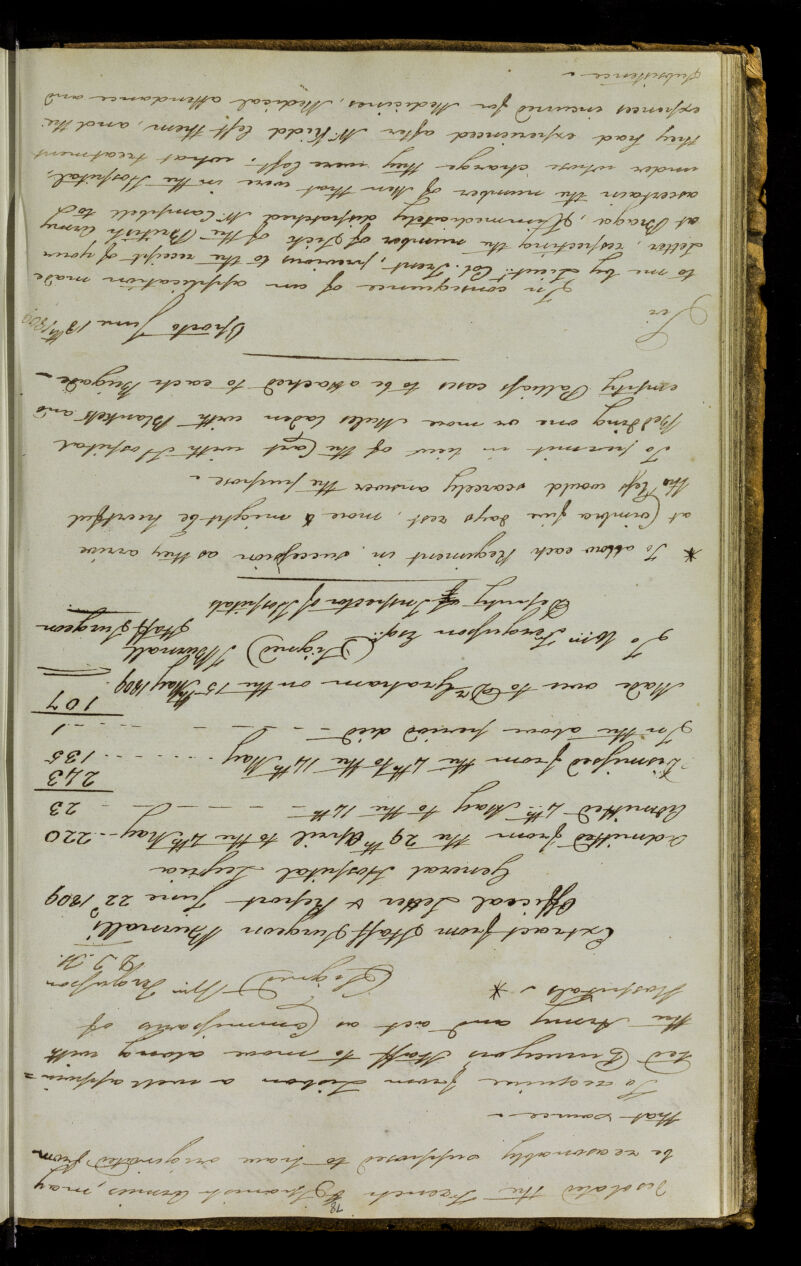 78
desolated the French & Spanish Armies, may
be reasonably supposed to have originated from
that source.
To require from Lisbon a well appoin=
ted Purveyors Staff to move along with
the Army and act as Commissaries of
Hospitals. * (Signed) Wm. Fergusson
D. I. H.
Extract from Staff Surgeon
Official Letter & Report June 22d 1809
General Hospital Leyria
Admitted from the 29th April to the 4th May - - 220
Admitted 4th May to the 14th - - - - - - 23
243
Dismissed from the 4th to the 14th May - - - - 135
In the above period died - - - - - - 1
107
Made over to Dr Graham on the 15th May 1809.
To Wm. Fergusson Esqr. (Signed)
Staff Surgeon
Deputy Inspector of Hospitals
* To allow each Regiment in succession as they arrive
at Coimbra five days rest, more might be hurtful
tho' less would scarcely answer the purpose.
To permit in lieu of the Cart with Hospital
Bedding one or more Mules laden with Blankets and
empty Palliass cases to be attached to each Brigade.
Oporto June 18th 1809
Sir
In consequence of an application made
to me by Lieut. Col. Trent, previous to the receipt of your
Letter, respecting the number of Sick of the British Army
at Braga, I immediately dispatched Mr Campbell to
ascertain the number of Men that were in the Hospital,
under whose charge they were left; what treatment
they had experienced after Mr Kidd left them, and the
expences incurred for Medicines, Medical attendance and
Subsistence.